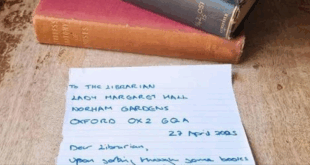 TO THE LIBRARIAN
LADY MARGARET HALL
NORHAM GARDENS
OXFORD OX2 6QA
27 April 2023
Dear Librarian,
upon sorting through some books